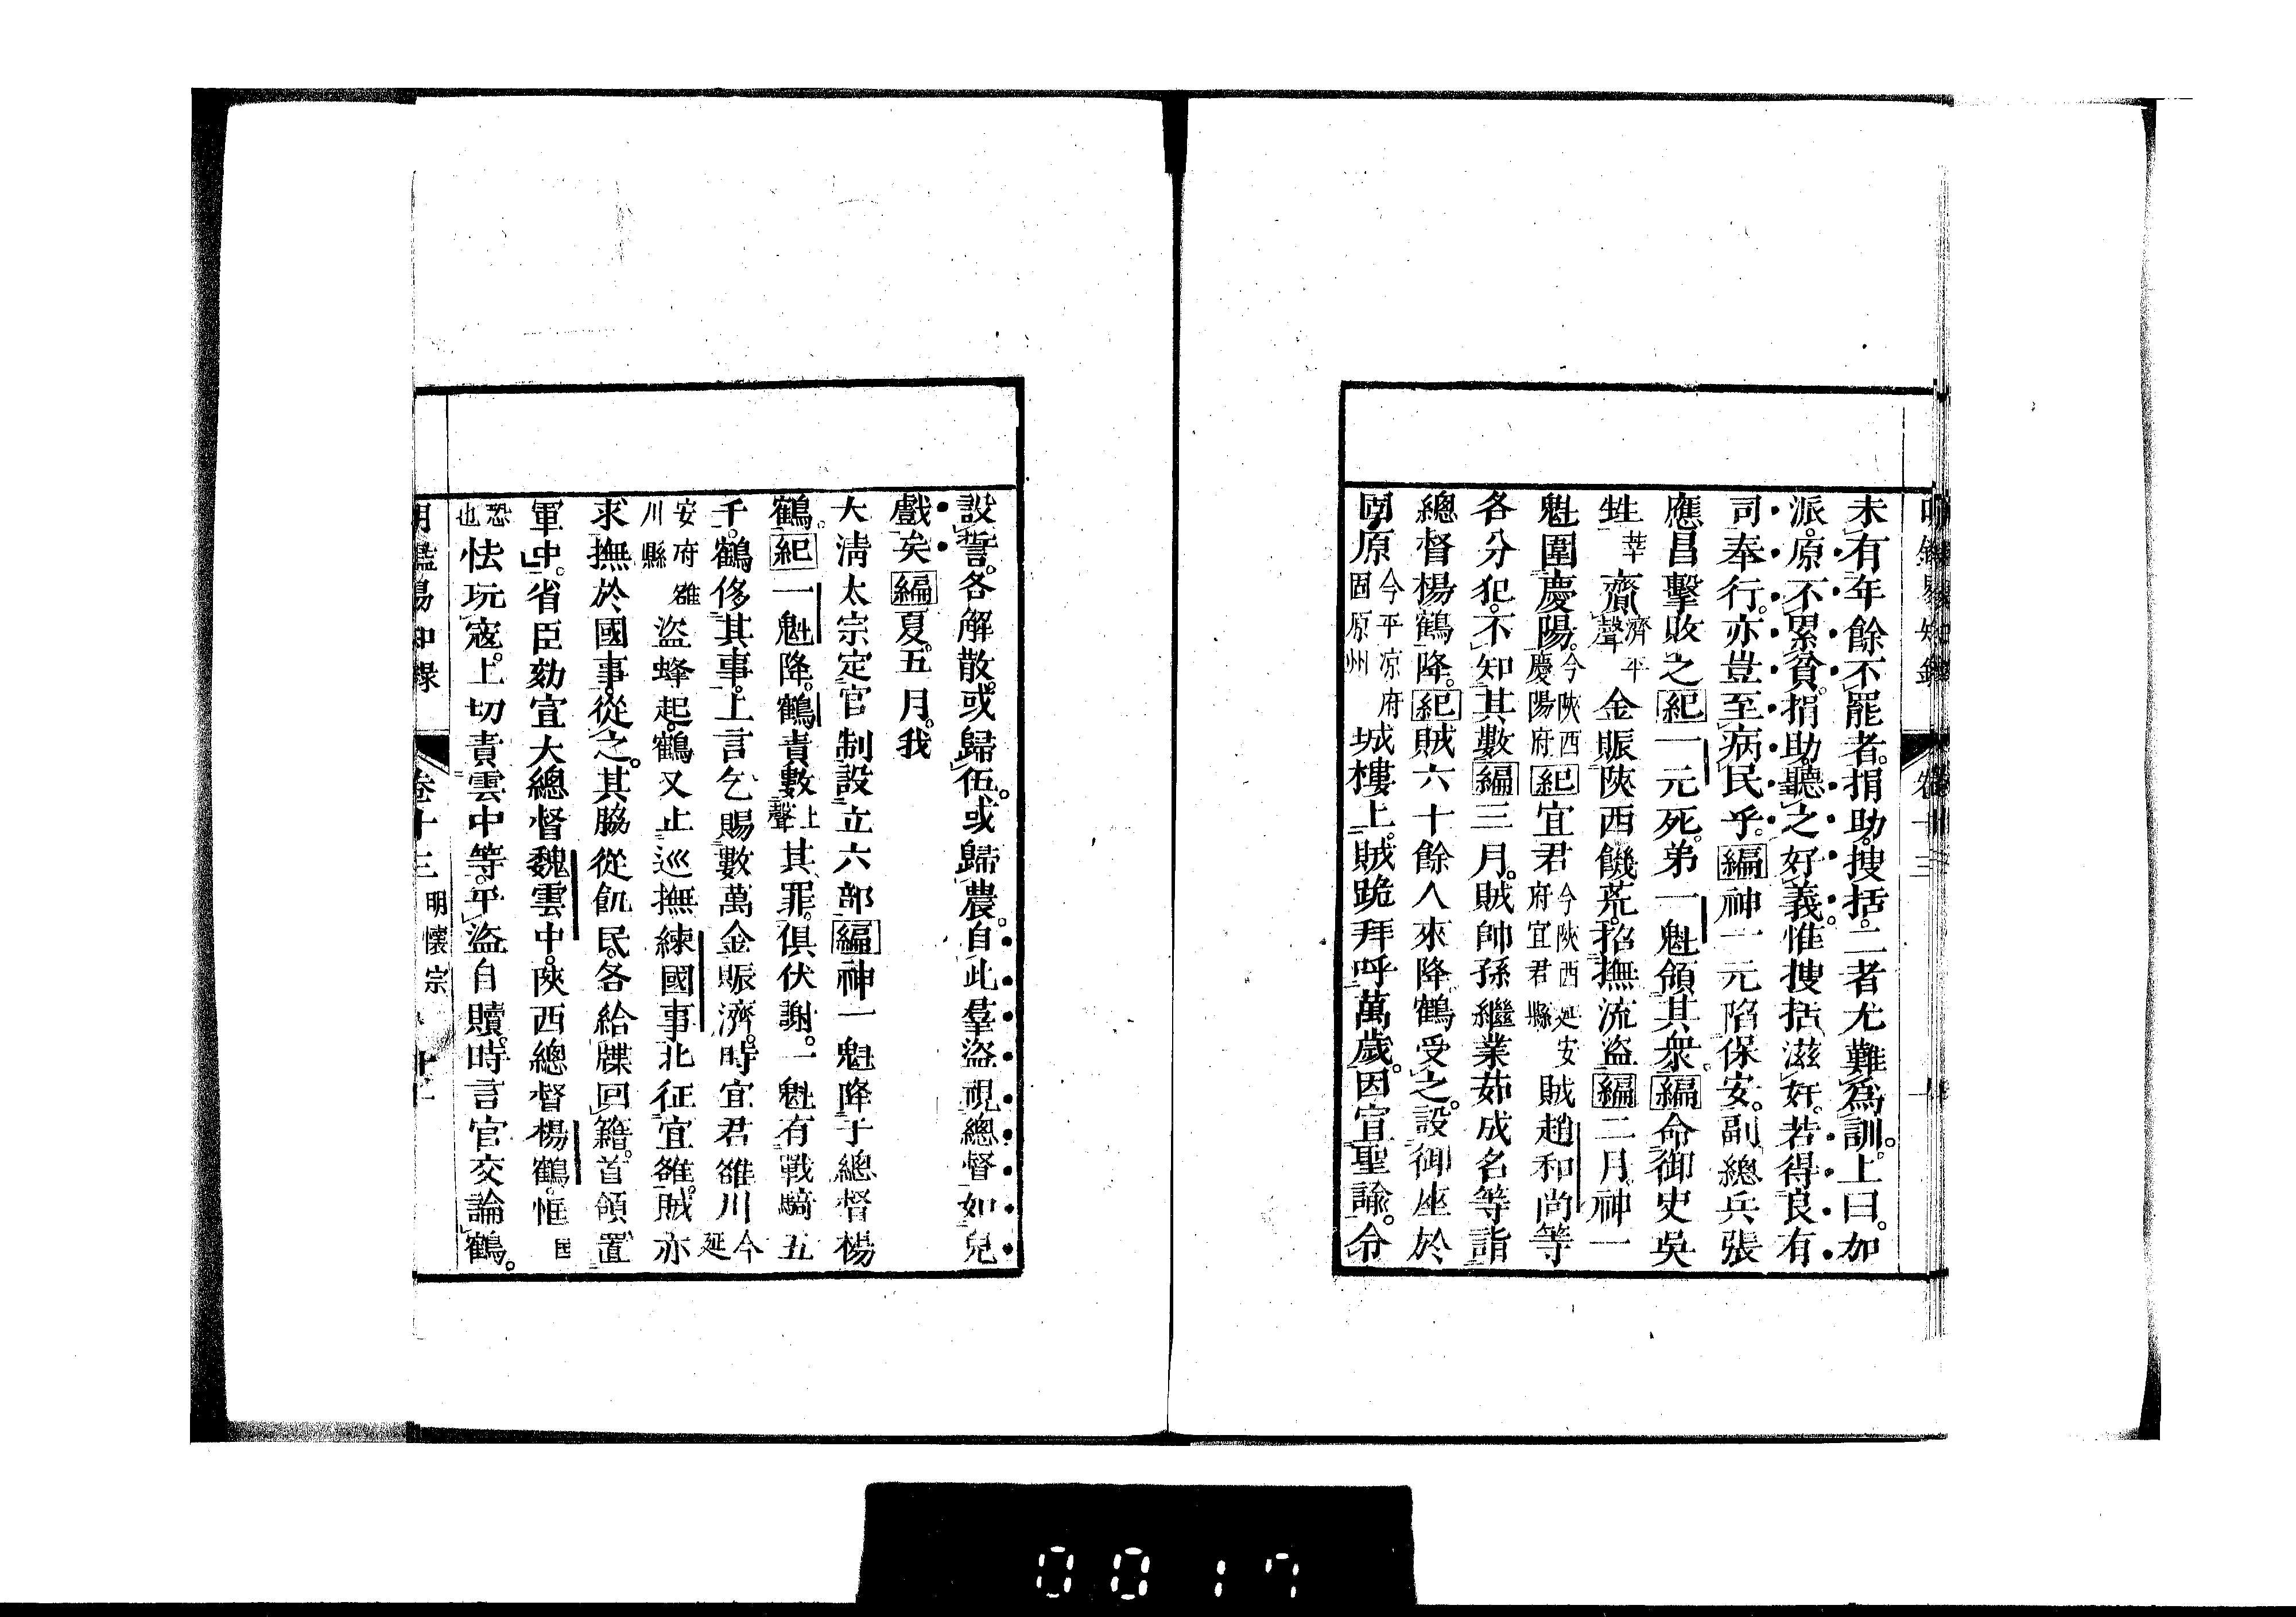 未有年餘不罷者。捐助。搜括。二者尤難為訓。上曰。加
派。原不累貧。捐助。聽之好義。惟搜括滋奸。若得良有
司奉行。亦豈至病民乎。編神一元陷保安。副總兵張
應昌擊敗之紀一元死。弟一魁領其衆。編命御史吳
甡莘齎濟平聲金賑陝西饑荒。招撫流盜編二月神一
魁圍慶陽。今陝西慶陽府紀宜君今陝西延安府宜君縣賊趙和尚等
各分犯。不知其數編三月。賊帥孫繼業茹成名等詣
總督楊鶴降。紀賊六十餘人來降鶴受之。設御座於
固原今平凉府固原州城樓上。賊跪拜呼萬歲。因宣聖諭。令
設誓。各解散。或歸伍。或歸農。自此羣盜視總督如兒
戲矣編夏。五月。我
大淸太宗定官制設立六部編神一魁降于總督楊
鶴。紀一魁降。鶴責數上聲其罪。俱伏謝。一魁有戰騎五
千。鶴侈其事。上言乞賜數萬金賑濟。時宜君雒川今延
安府雒川縣盜蜂起。鶴又止巡撫練國事北征宜雒。賊亦
求撫於國事。從之。其脇從飢民。各給牒回籍。首領置
軍中。省臣劾宜大總督魏雲中。陝西總督楊鶴。恇匡
恐也怯玩寇。上切責雲中等。平盜自贖。時言官交論鶴。
明鑑易知錄 卷十三 明懷宗